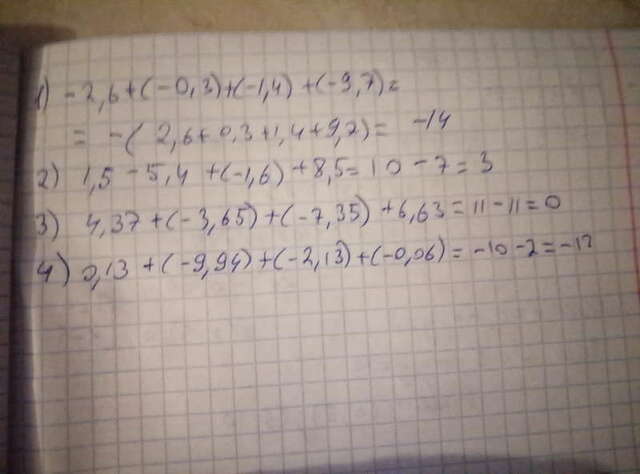 1) -2,6+(-0,3)+(-1,4)+(-9,7)=
= -(2,6+0,3+1,4+9,7)= -14
2) 1,5-5,4+(-1,6)+8,5=10-7=3
3) 4,37+(-3,65)+(-7,35)+6,63=11-11=0
4) 0,13+(-9,94)+(-2,13)+(-0,06)=-10-2=-12